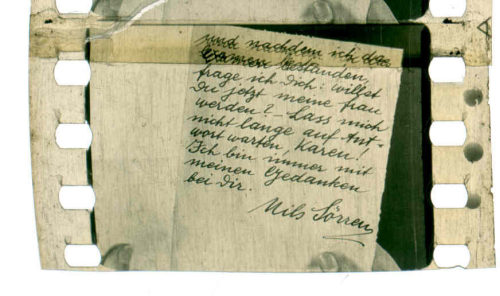 und nachdem ich das
Examen bestanden,
frage ich Dich: willst
Du jetzt meine Frau
werden? – Lass mich
nicht lange auf Ant-
wort warten, Karen!
Ich bin immer mit
meinen Gedanken
bei Dir.
Nils Sörren